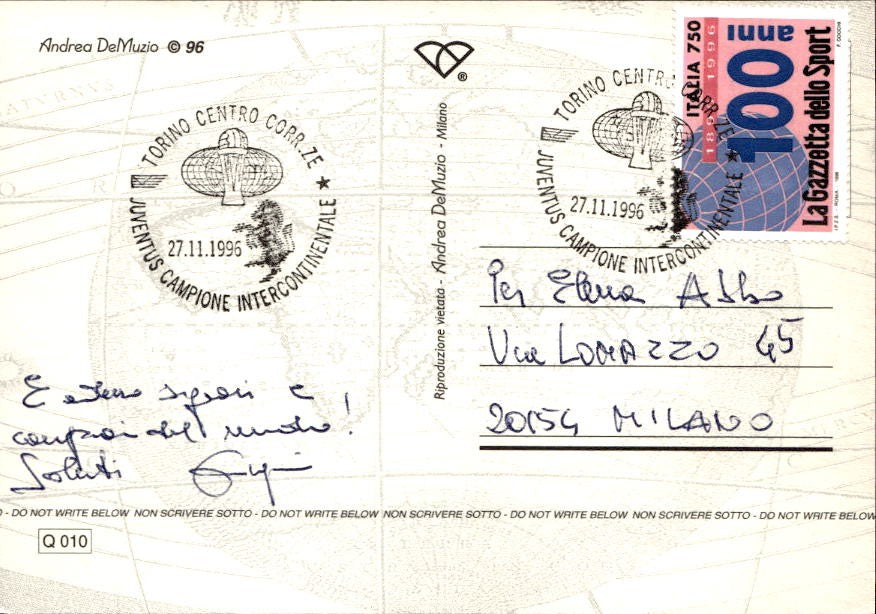 Andrea DeMuzio © 96
®
TORINO CENTRO CORR.ZE
27.11.1996
JUVENTUS CAMPIONE INTERCONTINENTALE ★
E adesso signori e
campioni del mondo!
Saluti
Riproduzione vietata - Andrea DeMuzio - Milano
TORINO CENTRO CORR.ZE
27.11.1996
JUVENTUS CAMPIONE INTERCONTINENTALE ★
ITALIA 750
1896 1996
100
anni
La Gazzetta dello Sport
I.P.Z.S. ROMA 1996
Per Elena
Via LOMAZZO 45
20154 MILANO
- DO NOT WRITE BELOW NON SCRIVERE SOTTO - DO NOT WRITE BELOW NON SCRIVERE SOTTO - DO NOT WRITE BELOW NON SCRIVERE SOTTO - DO NOT WRITE BELOW
Q 010